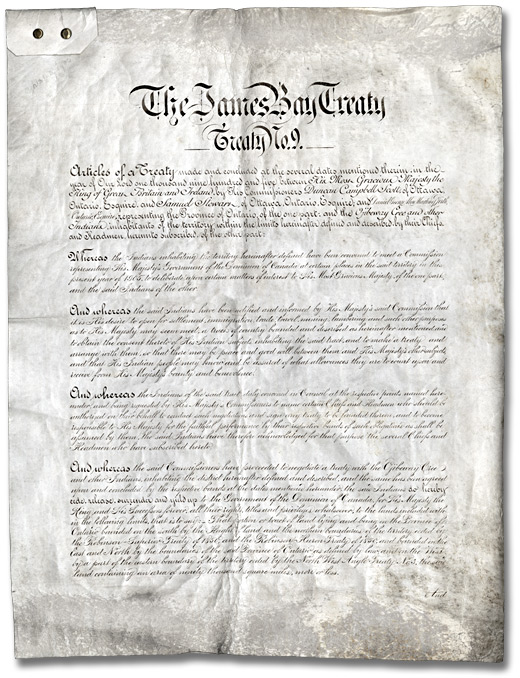 The James Bay Treaty
Treaty No. 9.
Articles of a Treaty made and concluded at the several dates mentioned therein, in the
year of Our Lord one thousand nine hundred and five between His Most Gracious Majesty the
King of Great Britain and Ireland, by His Commissioners Duncan Campbell Scott, of Ottawa,
Ontario, Esquire, and Samuel Stewart, of Ottawa, Ontario, Esquire, and Daniel George MacMartin, of Perth,
Ontario, Esquire, representing the Province of Ontario, of the one part; and the Ojibeway, Cree and other
Indians, inhabitants of the territory within the limits hereinafter defined and described, by their Chiefs
and Headmen, hereunto subscribed, of the other part:
Whereas the Indians inhabiting the territory hereinafter defined have been convened to meet a Commission
representing His Majesty's Government of the Dominion of Canada at certain places in the said territory in this
present year of 1905, to deliberate upon certain matters of interest to His Most Gracious Majesty, of the one part,
and the said Indians of the other.
And whereas the said Indians have been notified and informed by His Majesty's said Commission that
it is His desire to open for settlement, immigration, trade, travel, mining, lumbering and such other purposes
as to His Majesty may seem meet, a tract of country bounded and described as hereinafter mentioned, and
to obtain the consent thereto of His Indian subjects inhabiting the said tract, and to make a treaty and
arrange with them, so that there may be peace and good will between them and His Majesty's other subjects,
and that His Indian people may know and be assured of what allowances they are to count upon and
receive from His Majesty's bounty and benevolence.
And whereas the Indians of the said tract, duly convened in Council at the respective points named here-
under, and being requested by His Majesty's Commissioners to name certain Chiefs and Headmen who should be
authorized on their behalf to conduct such negotiations and sign any treaty to be founded thereon, and to become
responsible to His Majesty for the faithful performance by their respective bands of such obligations as shall be
assumed by them, the said Indians have therefore acknowledged for that purpose the several Chiefs and
Headmen who have subscribed hereto.
And whereas the said Commissioners have proceeded to negotiate a treaty with the Ojibeway, Cree
and other Indians, inhabiting the district hereinafter defined and described, and the same has been agreed
upon and concluded by the respective bands at the dates mentioned hereunder, the said Indians do hereby
cede, release, surrender and yield up to the Government of the Dominion of Canada, for His Majesty the
King and His Successors forever, all their rights, titles and privileges whatsoever, to the lands included within
the following limits, that is to say: That portion or tract of land lying and being in the Province of
Ontario, bounded on the south by the Height of Land and the northern boundaries of the territory ceded by
the Robinson-Superior Treaty of 1850, and the Robinson-Huron Treaty of 1850, and bounded on the
East and North by the boundaries of the said Province of Ontario as defined by law, and on the West
by a part of the eastern boundary of the territory ceded by the North West Angle Treaty No. 3; the said
land containing an area of ninety thousand square miles, more or less.
And